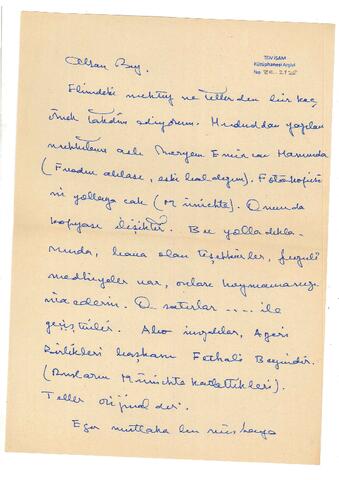 TDV İSAM
Kütüphanesi Arşivi
No
Altan Bey,
Elimdeki mektup ve tellerden bir kaç
örnek takdim ediyorum. Hududdan yazılan
mektubun aslı Meryem Emircan Hanımda
( eski baldızım). Fotokopisi
ni yollayacak (Münichte). Onunda
kopyası ilişiktir. Bu yolladıkla
rımda, bana olan teşekkürler, fuzuli
medhiyeler var, onları koymamanızı
rica ederim. O satırlar ..... ile
geçiştirilir. Alıcı Azeri
Birlikleri başkanı Fethali Beyindir.
(Rusların Münichte katlettikleri).
Teller orijinaldir.
Eğer mutlaka bu